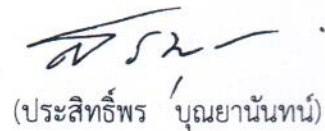 (ประสิทธิ์พร บุณยานันทน์)